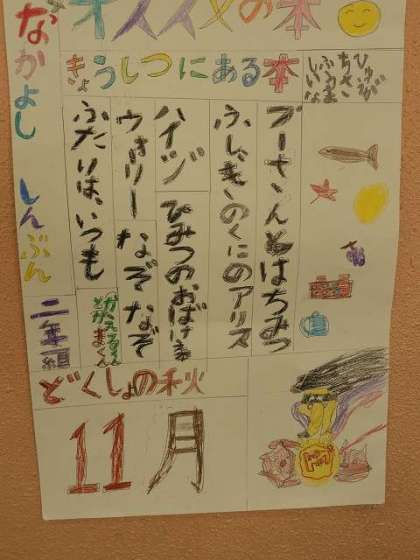 オススメの本
なかよし しんぶん
きょうしつにある本
プーさんとはちみつ
ふしぎのくにのアリス
ハイヅ
ひみつのおばけ
ウォーリー
なぞなぞ
ふたりは、いつも
かえるくん
がまくん
二年
どくしょの秋
11月